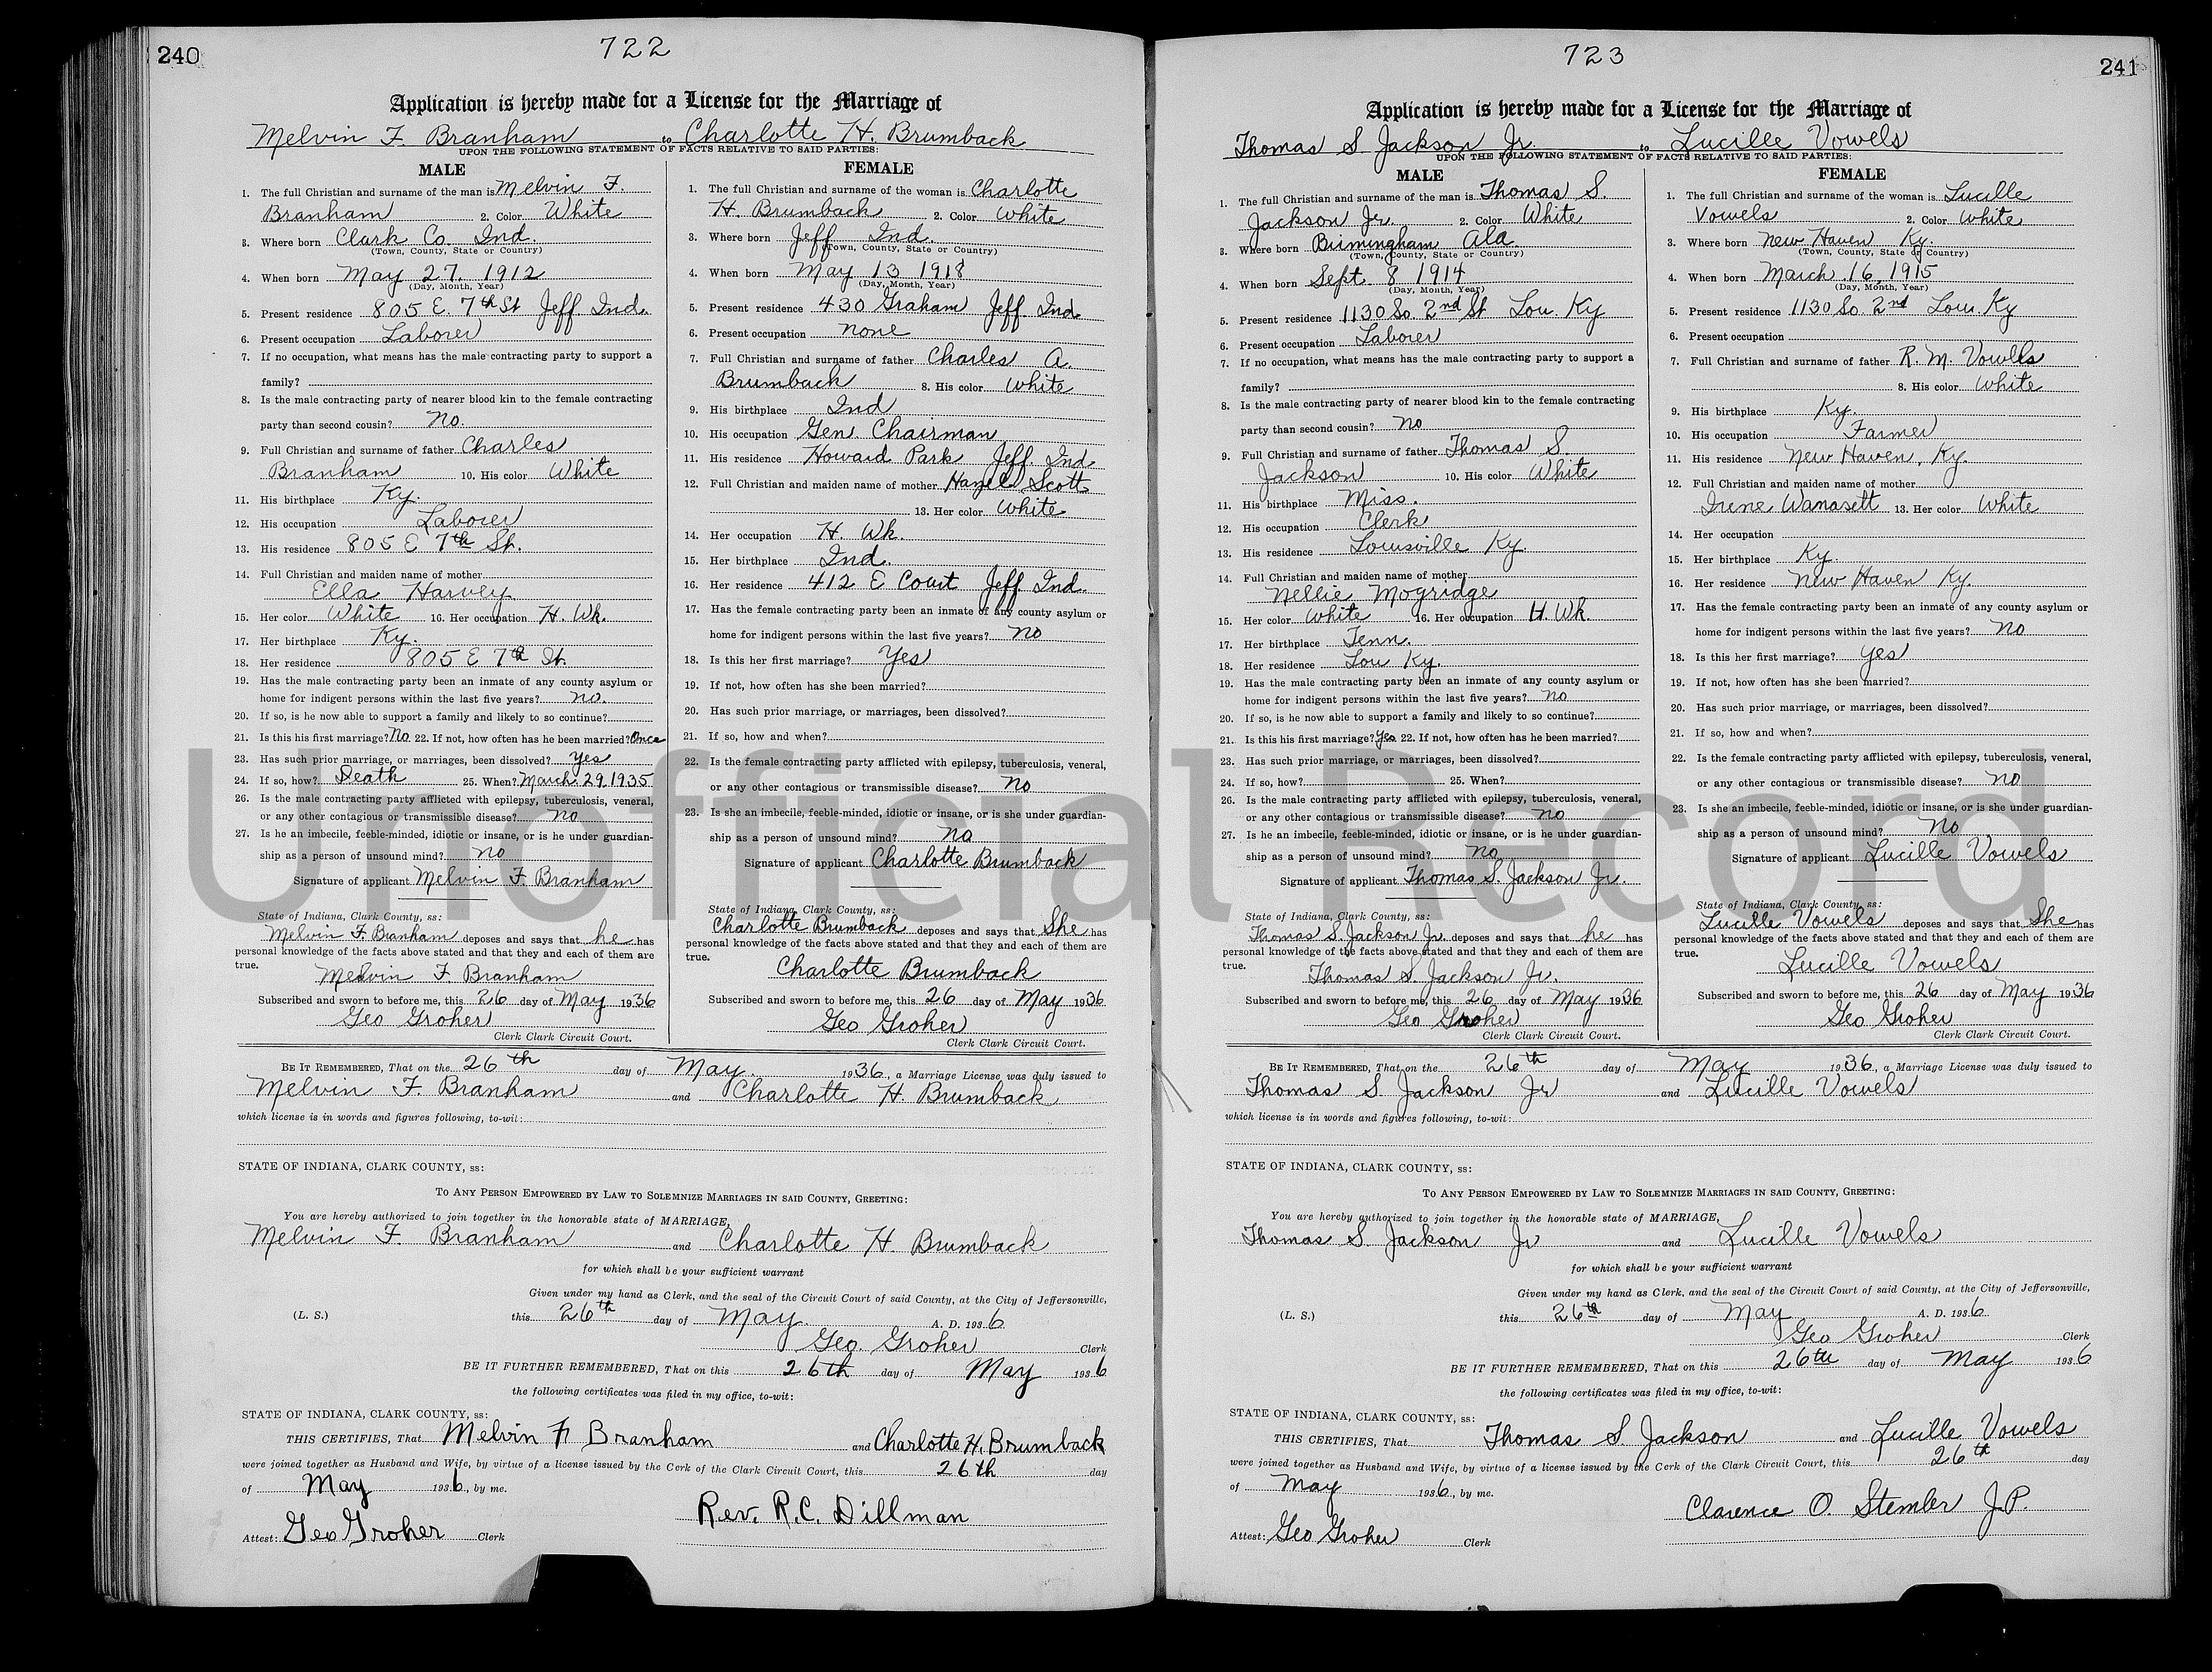 240
722
Application is hereby made for a License for the Marriage of
Melvin F. Branham to Charlotte H. Brumback
UPON THE FOLLOWING STATEMENT OF FACTS RELATIVE TO SAID PARTIES:
MALE
1. The full Christian and surname of the man is Melvin F.
Branham 2. Color White
3. Where born Clark Co. Ind.
(Town, County, State or Country)
4. When born May 27. 1912
(Day, Month, Year)
5. Present residence 805 E. 7th St Jeff. Ind.
6. Present occupation Laborer
7. If no occupation, what means has the male contracting party to support a
family?
8. Is the male contracting party of nearer blood kin to the female contracting
party than second cousin? No.
9. Full Christian and surname of father Charles
Branham 10. His color White
11. His birthplace Ky.
12. His occupation Laborer
13. His residence 805 E 7th St.
14. Full Christian and maiden name of mother
Ella Harvey
15. Her color White 16. Her occupation H. Wk.
17. Her birthplace Ky.
18. Her residence 805 E 7th St.
19. Has the male contracting party been an inmate of any county asylum or
home for indigent persons within the last five years? no.
20. If so, is he now able to support a family and likely to so continue?
21. Is this his first marriage? No 22. If not, how often has he been married? Once
23. Has such prior marriage, or marriages, been dissolved? Yes
24. If so, how? Death 25. When? March 29, 1935
26. Is the male contracting party afflicted with epilepsy, tuberculosis, veneral,
or any other contagious or transmissible disease? No
27. Is he an imbecile, feeble-minded, idiotic or insane, or is he under guardian-
ship as a person of unsound mind? no
Signature of applicant Melvin F. Branham
State of Indiana, Clark County, ss:
Melvin F. Branham deposes and says that he has
personal knowledge of the facts above stated and that they and each of them are
true.
Melvin F. Branham
Subscribed and sworn to before me, this 26 day of May 1936
Geo Groher
Clerk Clark Circuit Court.
FEMALE
1. The full Christian and surname of the woman is Charlotte
H. Brumback 2. Color White
3. Where born Jeff Ind.
(Town, County, State or Country)
4. When born May 13 1918
(Day, Month, Year)
5. Present residence 430 Graham Jeff. Ind.
6. Present occupation none
7. Full Christian and surname of father Charles A.
Brumback 8. His color White
9. His birthplace Ind
10. His occupation Gen. Chairman
11. His residence Howard Park Jeff. Ind
12. Full Christian and maiden name of mother Hazel Scott
13. Her color White
14. Her occupation H. Wk.
15. Her birthplace Ind.
16. Her residence 412 E Court Jeff Ind.
17. Has the female contracting party been an inmate of any county asylum or
home for indigent persons within the last five years? no
18. Is this her first marriage? Yes
19. If not, how often has she been married?
20. Has such prior marriage, or marriages, been dissolved?
21. If so, how and when?
22. Is the female contracting party afflicted with epilepsy, tuberculosis, veneral,
or any other contagious or transmissible disease? no
23. Is she an imbecile, feeble-minded, idiotic or insane, or is she under guardian-
ship as a person of unsound mind? no
Signature of applicant Charlotte Brumback
State of Indiana, Clark County, ss:
Charlotte Brumback deposes and says that She has
personal knowledge of the facts above stated and that they and each of them are
true.
Charlotte Brumback
Subscribed and sworn to before me, this 26 day of May 1936
Geo Groher
Clerk Clark Circuit Court.
BE IT REMEMBERED, That on the 26th day of May. 1936, a Marriage License was duly issued to
Melvin F. Branham and Charlotte H. Brumback
which license is in words and figures following, to-wit:
STATE OF INDIANA, CLARK COUNTY, ss:
TO ANY PERSON EMPOWERED BY LAW TO SOLEMNIZE MARRIAGES IN SAID COUNTY, GREETING:
You are hereby authorized to join together in the honorable state of MARRIAGE,
Melvin F. Branham and Charlotte H Brumback
for which shall be your sufficient warrant
Given under my hand as Clerk, and the seal of the Circuit Court of said County, at the City of Jeffersonville,
(L. S.) this 26th day of May. A. D. 1936
Geo. Groher Clerk
BE IT FURTHER REMEMBERED, That on this 26th day of May 1936
the following certificates was filed in my office, to-wit:
STATE OF INDIANA, CLARK COUNTY, ss:
THIS CERTIFIES, That Melvin F Branham and Charlotte H. Brumback
were joined together as Husband and Wife, by virtue of a license issued by the Cerk of the Clark Circuit Court, this 26th day
of May 1936, by me.
Rev. R.C. Dillman
Attest: Geo Groher Clerk
723
241
Application is hereby made for a License for the Marriage of
Thomas S. Jackson Jr. to Lucille Vowels
UPON THE FOLLOWING STATEMENT OF FACTS RELATIVE TO SAID PARTIES:
MALE
1. The full Christian and surname of the man is Thomas S.
Jackson Jr. 2. Color White
3. Where born Birmingham Ala.
(Town, County, State or Country)
4. When born Sept 8 1914
(Day, Month, Year)
5. Present residence 1130 So. 2nd St Lou. Ky
6. Present occupation Laborer
7. If no occupation, what means has the male contracting party to support a
family?
8. Is the male contracting party of nearer blood kin to the female contracting
party than second cousin? no
9. Full Christian and surname of father Thomas S.
Jackson 10. His color White
11. His birthplace Miss.
12. His occupation Clerk
13. His residence Louisville Ky.
14. Full Christian and maiden name of mother
Nellie Mogridge
15. Her color White 16. Her occupation H. Wk.
17. Her birthplace Tenn.
18. Her residence Lou Ky.
19. Has the male contracting party been an inmate of any county asylum or
home for indigent persons within the last five years? no
20. If so, is he now able to support a family and likely to so continue?
21. Is this his first marriage? Yes 22. If not, how often has he been married?
23. Has such prior marriage, or marriages, been dissolved?
24. If so, how? 25. When?
26. Is the male contracting party afflicted with epilepsy, tuberculosis, veneral,
or any other contagious or transmissible disease? no
27. Is he an imbecile, feeble-minded, idiotic or insane, or is he under guardian-
ship as a person of unsound mind? no
Signature of applicant Thomas S. Jackson Jr.
State of Indiana, Clark County, ss:
Thomas S. Jackson Jr. deposes and says that he has
personal knowledge of the facts above stated and that they and each of them are
true.
Thomas S Jackson Jr.
Subscribed and sworn to before me, this 26 day of May 1936
Geo Groher
Clerk Clark Circuit Court.
FEMALE
1. The full Christian and surname of the woman is Lucille
Vowels 2. Color White
3. Where born New Haven Ky.
(Town, County, State or Country)
4. When born March 16, 1915
(Day, Month, Year)
5. Present residence 1130 So. 2nd Lou. Ky
6. Present occupation
7. Full Christian and surname of father R. M. Vowells
8. His color White
9. His birthplace Ky.
10. His occupation Farmer
11. His residence New Haven, Ky.
12. Full Christian and maiden name of mother
Irene Wanasett 13. Her color White
14. Her occupation
15. Her birthplace Ky.
16. Her residence New Haven Ky.
17. Has the female contracting party been an inmate of any county asylum or
home for indigent persons within the last five years? no
18. Is this her first marriage? yes
19. If not, how often has she been married?
20. Has such prior marriage, or marriages, been dissolved?
21. If so, how and when?
22. Is the female contracting party afflicted with epilepsy, tuberculosis, veneral,
or any other contagious or transmissible disease? no
23. Is she an imbecile, feeble-minded, idiotic or insane, or is she under guardian-
ship as a person of unsound mind? no
Signature of applicant Lucille Vowels
State of Indiana, Clark County, ss:
Lucille Vowels deposes and says that She has
personal knowledge of the facts above stated and that they and each of them are
true.
Lucille Vowels
Subscribed and sworn to before me, this 26 day of May 1936
Geo Groher
Clerk Clark Circuit Court.
BE IT REMEMBERED, That on the 26th day of May 1936, a Marriage License was duly issued to
Thomas S. Jackson Jr and Lucille Vowels
which license is in words and figures following, to-wit:
STATE OF INDIANA, CLARK COUNTY, ss:
TO ANY PERSON EMPOWERED BY LAW TO SOLEMNIZE MARRIAGES IN SAID COUNTY, GREETING:
You are hereby authorized to join together in the honorable state of MARRIAGE,
Thomas S. Jackson Jr and Lucille Vowels
for which shall be your sufficient warrant
Given under my hand as Clerk, and the seal of the Circuit Court of said County, at the City of Jeffersonville,
(L. S.) this 26th day of May A. D. 1936
Geo Groher Clerk
BE IT FURTHER REMEMBERED, That on this 26th day of May 1936
the following certificates was filed in my office, to-wit:
STATE OF INDIANA, CLARK COUNTY, ss:
THIS CERTIFIES, That Thomas S Jackson and Lucille Vowels
were joined together as Husband and Wife, by virtue of a license issued by the Cerk of the Clark Circuit Court, this 26th day
of May 1936, by me.
Clarence O. Stemler J.P.
Attest: Geo Groher Clerk
Unofficial Record